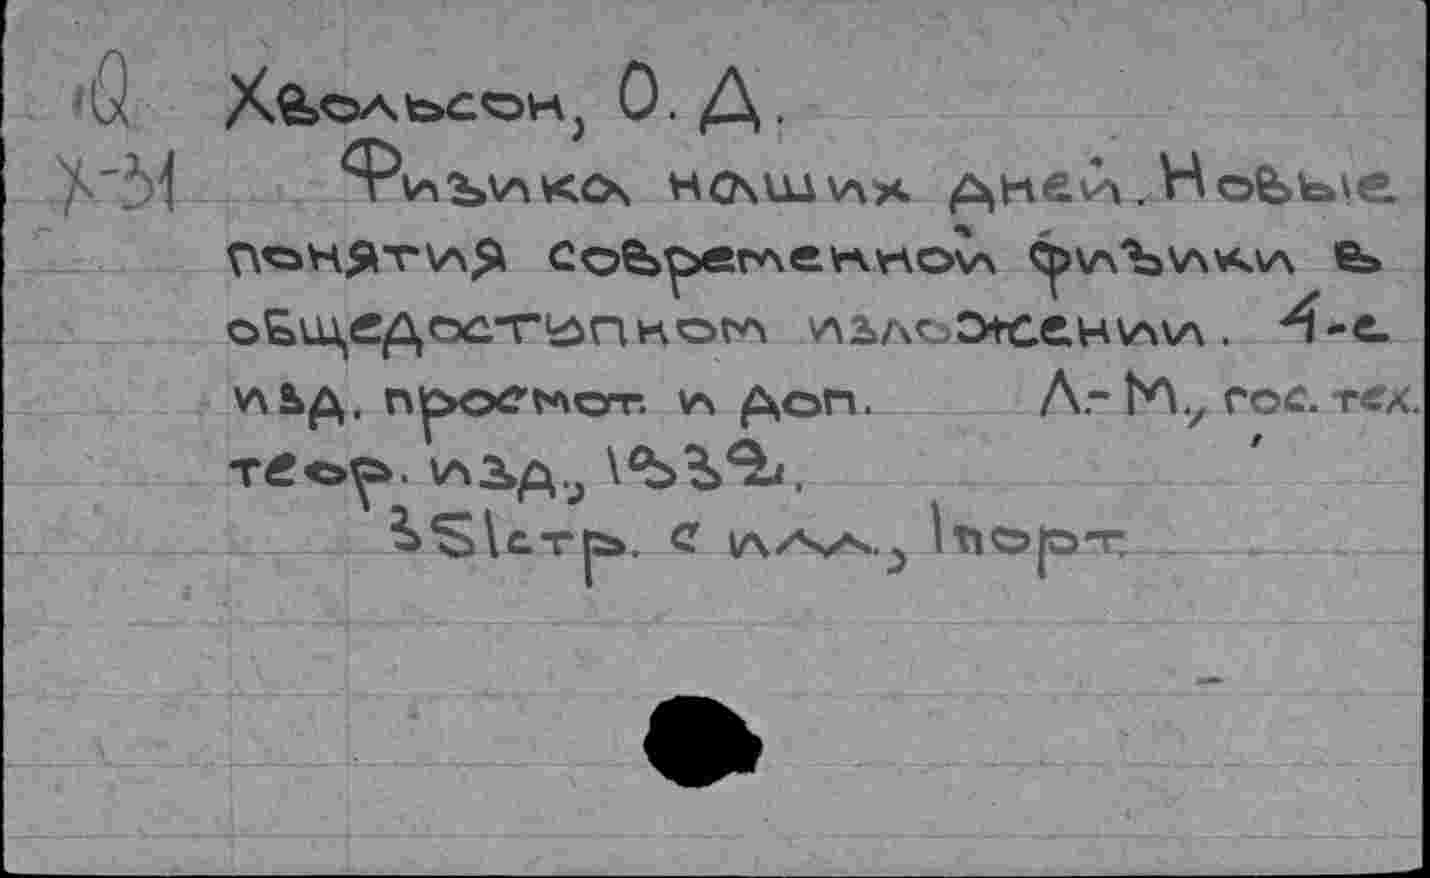 Q Хвольсон, О. Д.
Х-31 Физика наших дней. Новые
понятия современной физики в
общедоступном изложении. 4-е
изд. просмот. и доп. Л.-М., гос. тех.
теор. изд., 1932.
351стр. с илл., 1порт.